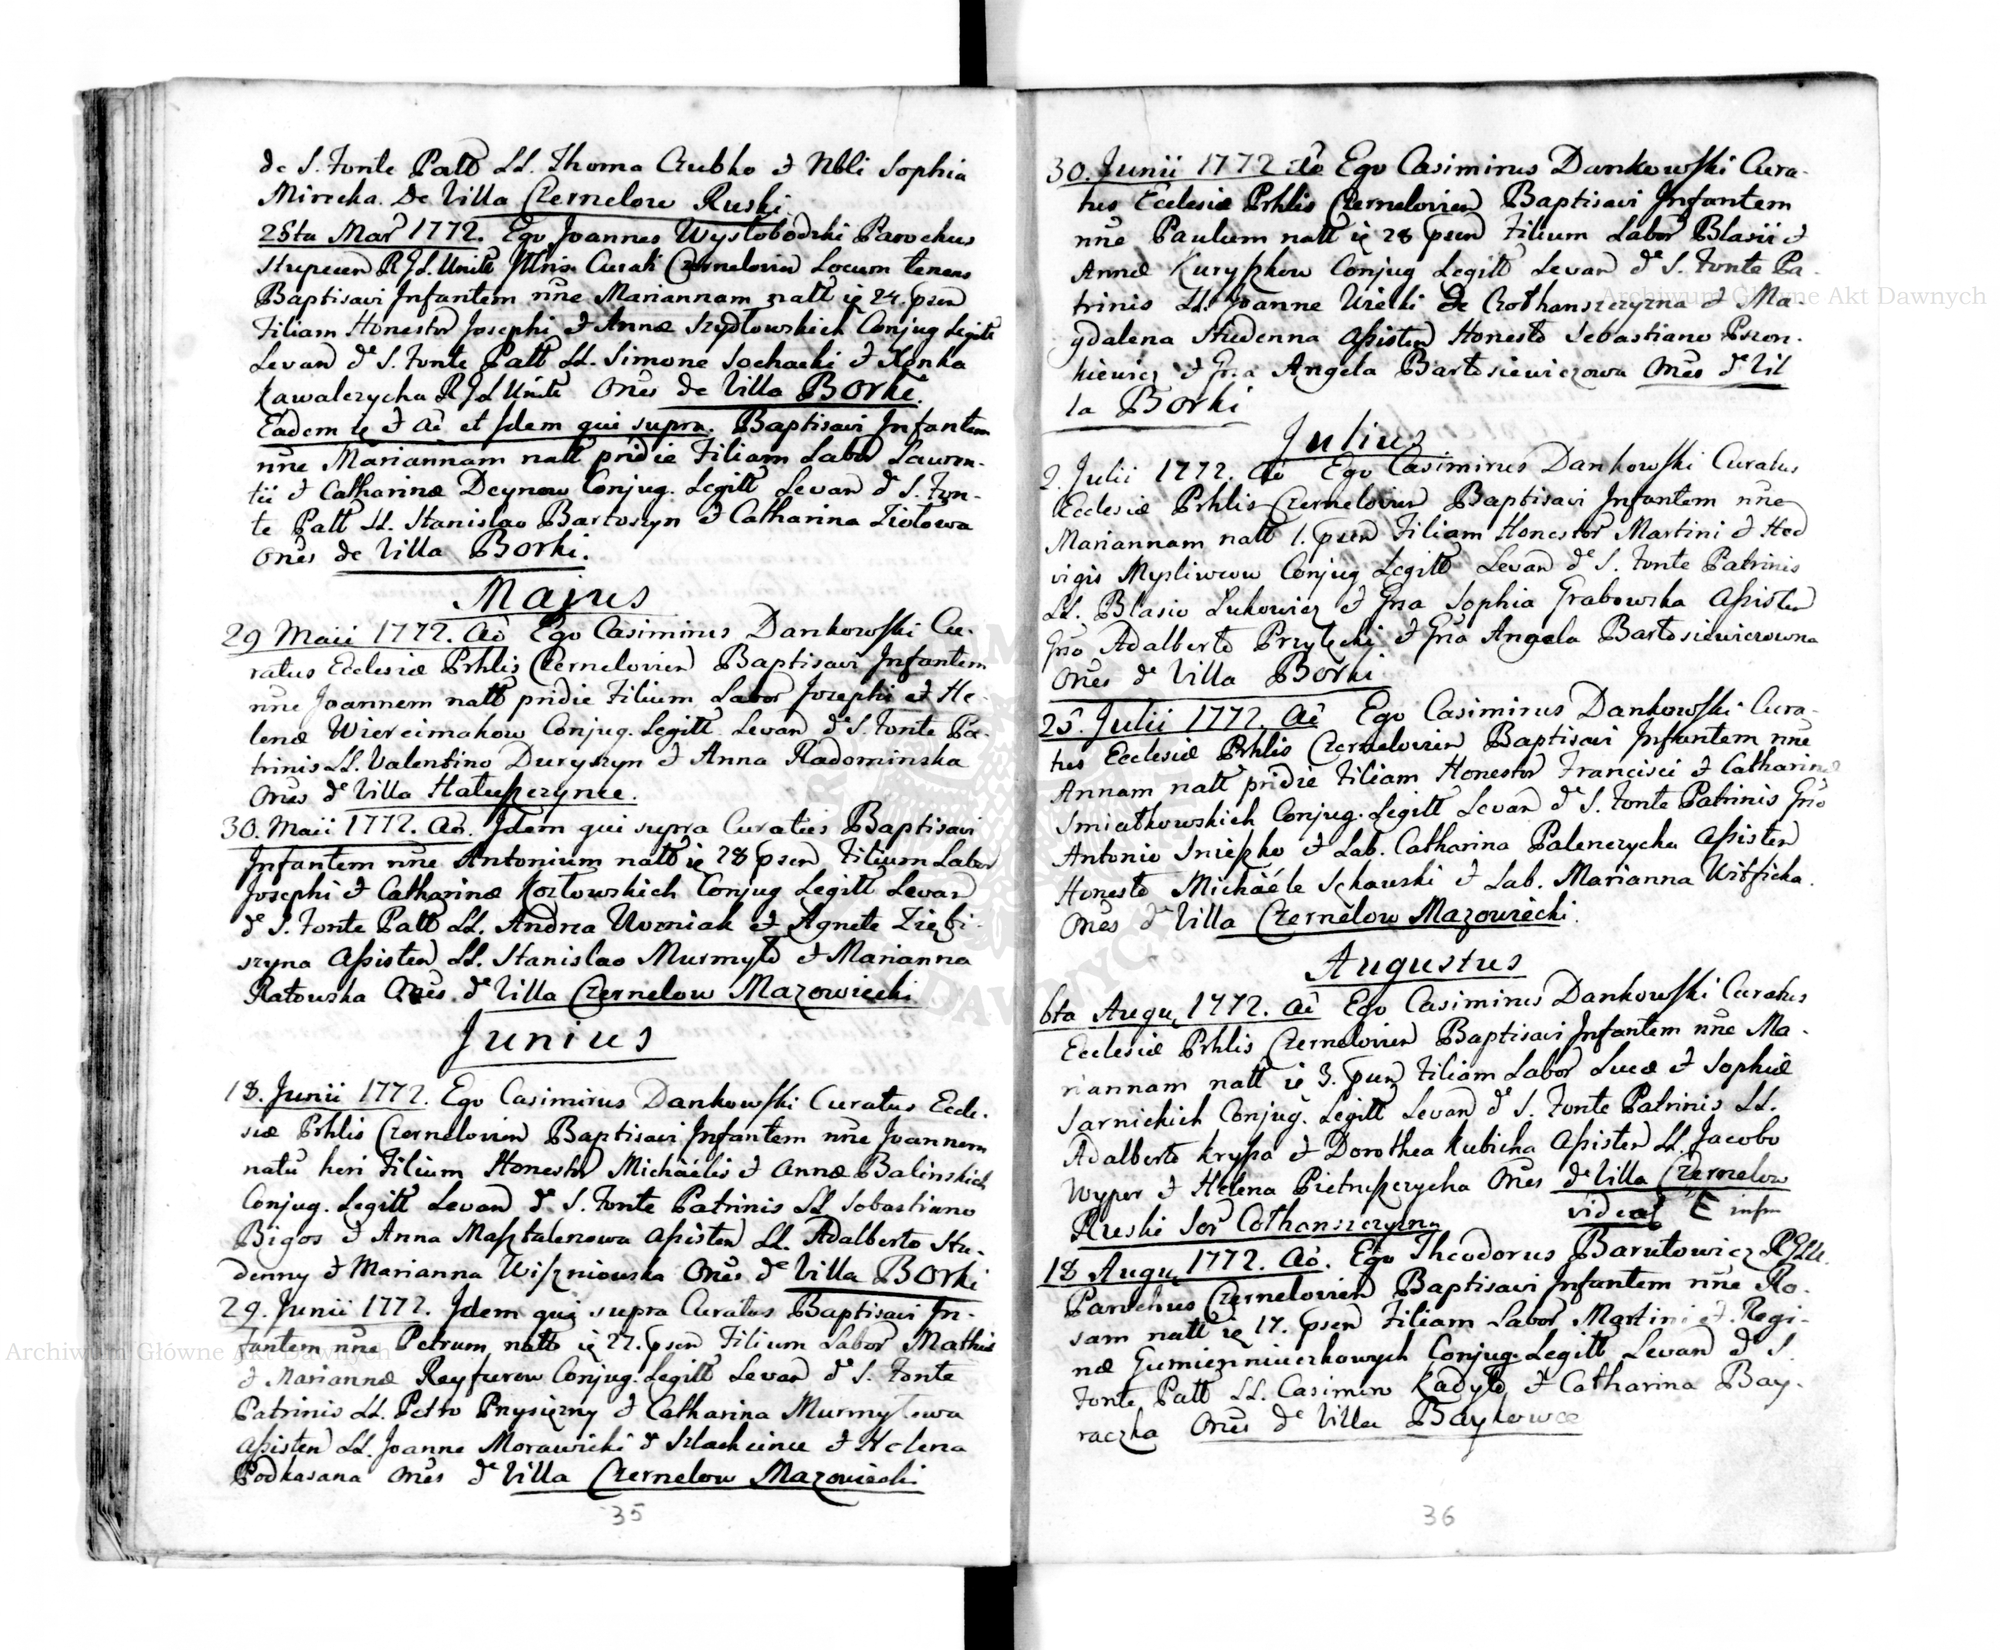 de S. Fonte Patt LL. Thoma Czubko et Nbli Sophia
Mirecka. De Villa Czernelow Ruski
25ta Mar 1772. Ego Joannes Wysłobodzki Parochus
Stupecen R.G.L. Unite Curati Czernelovien Locum tenens
Baptisavi Infantem nne Mariannam natt ie 24. psen
Filiam Honestor Josephi et Annæ Szydłowskich Conjug Legitt
Levan de S. Fonte Patt LL. Simone Sochacki et Xenka
Kawalczycha R.G.L. Unite Ones de Villa Borki.
Eadem ie et Ao et Idem qui supra. Baptisavi Infantem
nne Mariannam natt pridie Filiam Labor Lauren-
tii et Catharinæ Deynow Conjug. Legitt Levan de S. Fon-
te Patt LL. Stanislao Bartoszyn et Catharina Ziołowa
Ones de Villa Borki.
Majus
29 Maii 1772. Ao Ego Casimirus Dankowski Cu-
ratus Ecclesiæ Prhlis Czernelovien Baptisavi Infantem
nne Joannem natt pridie Filium Labor Josephi et He-
lenæ Wiercimakow Conjug. Legitt Levan de S. Fonte Pa-
trinis LL. Valentino Duryszyn et Anna Radominska
Ones de Villa Hałuszczynce.
30. Maii 1772. Ao. Idem qui supra Curatus Baptisavi
Infantem nne Antonium natt ie 28 psen Filium Labor
Josephi et Catharinæ Kozłowskich Conjug Legitt Levan
de S. Fonte Patt LL. Andrea Worniak et Agnete Ziębi-
szyna Assisten LL. Stanislao Murmyło et Marianna
Ratowska Ones de Villa Czernelow Mazowiecki
Junius
18. Junii 1772. Ego Casimirus Dankowski Curatus Eccle-
siæ Prhlis Czernelovien Baptisavi Infantem nne Joannem
natu heri Filium Honestor Michaelis et Annæ Balinskich
Conjug. Legitt Levan de S. Fonte Patrinis LL Sebastiano
Bigos et Anna Masztalerzowa Assisten LL. Adalberto Stu-
denny et Marianna Wiszniowska Ones de Villa Borki
29. Junii 1772. Idem qui supra Curatus Baptisavi In-
fantem nne Petrum natt ie 27. psen Filium Labor Mathiæ
et Mariannæ Reyfurow Conjug. Legitt Levan de S. Fonte
Patrinis LL. Petro Prysiężny et Catharina Murmyłowa
Assisten LL. Joanne Morawicki de Szlachcince et Helena
Podkasana Ones de Villa Czernelow Mazowiecki
35
30. Junii 1772 Ao Ego Casimirus Dankowski Cura-
tus Ecclesiæ Prhlis Czernelovien Baptisavi Infantem
nne Paulum natt ie 28 psen Filium Labor Blasii et
Annæ Kuryszkow Conjug Legitt Levan de S. Fonte Pa-
trinis LL. Joanne Uzelki De Czothanszczyzna et Ma-
gdalena Studenna Assisten Honesto Sebastiano Pszon-
kiewicz et Gsa Angela Bartosiewiczowa Ones de Vil
la Borki
Julius
2. Julii 1772. Ao Ego Casimirus Dankowski Curatus
Ecclesiæ Prhlis Czernelovien Baptisavi Infantem nne
Mariannam natt 1. psen Filiam Honestor Martini et Hed
vigis Mysliwcow Conjug Legitt Levan de S. Fonte Patrinis
LL. Blasio Lukowicz et Gsa Sophia Grabowska Assisten
Gso Adalberto Przyłęcki et Gsa Angela Bartosiewiczowna
Ones de Villa Borki
25. Julii 1772. Ao Ego Casimirus Dankowski Cura-
tus Ecclesiæ Prhlis Czernelovien Baptisavi Infantem nne
Annam natt pridie Filiam Honestor Francisci et Catharinæ
Smiatkowskich Conjug. Legitt Levan de S. Fonte Patrinis Gso
Antonio Snieszko et Lab. Catharina Palenczycha Assisten
Honesto Michaéle Sekawski et Lab. Marianna Witficka.
Ones de Villa Czernelow Mazowiecki.
Augustus
6ta Augu 1772. Ao Ego Casimirus Dankowski Curatus
Ecclesiæ Prhlis Czernelovien Baptisavi Infantem nne Ma-
riannam natt ie 3. psen Filiam Labor Lucæ et Sophiæ
Sarnickich Conjug. Legitt Levan de S. Fonte Patrinis LL.
Adalberto Krypa et Dorothea Kubicka Assisten LL. Jacobo
Wyper et Helena Pietruszczycha Ones de Villa Czernelow
Ruski Sor Cothanszczyzna videat E infra
18 Augu 1772. Ao. Ego Theodorus Barutowicz
Parochus Czernelovien Baptisavi Infantem nne Ro-
sam natt ie 17. psen Filiam Labor Martini et Regi-
næ Gumienniuczkowych Conjug. Legitt Levan de S.
Fonte Patt LL. Casimiro Kadyło et Catharina Bay-
raczka Ones de Villa Baykowce
36
Archiwum Główne Akt Dawnych
Archiwum Główne Akt Dawnych